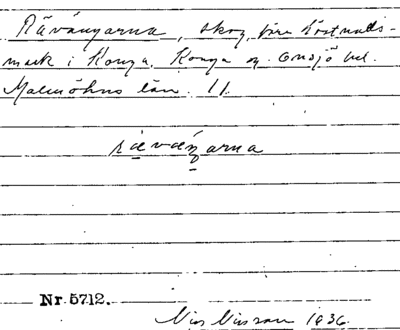 Rävängarna, skog, före Röstmads-
mark i Konga. Konga sn. Onsjö hd.
Malmöhus län. 11.
rävängarna
Nr. 5712.
Nils Nilsson 1936.